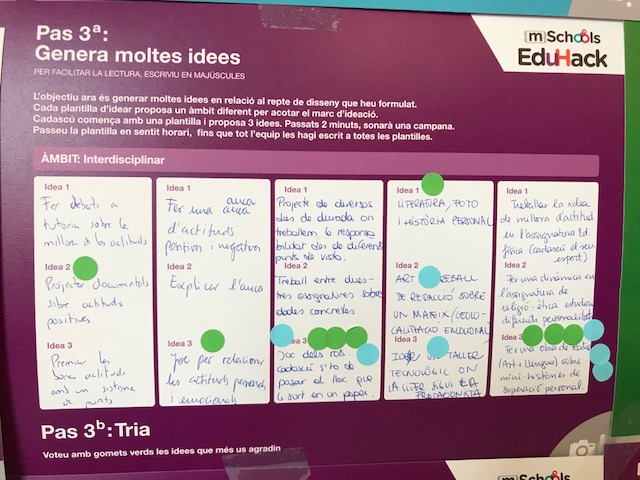 Pas 3ª:
Genera moltes idees
PER FACILITAR LA LECTURA, ESCRIVIU EN MAJÚSCULES
[m]Schools
EduHack
L'objectiu ara és generar moltes idees en relació al repte de disseny que heu formulat.
Cada plantilla d'idear proposa un àmbit diferent per acotar el marc d'ideació.
Cadascú comença amb una plantilla i proposa 3 idees. Passats 2 minuts, sonarà una campana.
Passeu la plantilla en sentit horari, fins que tot l'equip les hagi escrit a totes les plantilles.
ÀMBIT: Interdisciplinar
Idea 1
Fer debats a
tutoria sobre la
millora de les actituds
Idea 2
Projectar documentals
sobre actituds
positives
Idea 3
Premiar les
bones actituds
amb un sistema
de punts
Idea 1
Fer una auca
d'actituds
positives i negatives
Idea 2
Explicar l'auca
Idea 3
Joc per relacionar
les actituds personals
i emocionals
Idea 1
Projecte de diversos
dies de durada on
treballem la responsa
bilitat des de diferents
punts de vista.
Idea 2
Treball entre dues-
tres assignatures sobre
dades concretes
Joc dels rols
cadascú s'ha de
posar al lloc que
li surt en un paper.
Idea 1
LITERATURA, FOTO
I HISTÒRIA PERSONAL
Idea 2
ART
DE REDACCIÓ SOBRE
UN MATEIX
EMOCIONAL
Idea 3
UN TALLER
TECNOLÒGIC ON
PROTAGONISTA
Idea 1
Treballar la idea
de millora d'actitud
en l'assignatura Ed
física (cadascú el seu
esport)
Idea 2
Fer una dinàmica en
l'assignatura de
religió-ètica
diferents personalitats
Idea 3
Fer una obra de teatre
(Art i Llengua) sobre
mini-històries de
superació personal.
Pas 3ᵇ: Tria
Voteu amb gomets verds les idees que més us agradin
[m]Schools